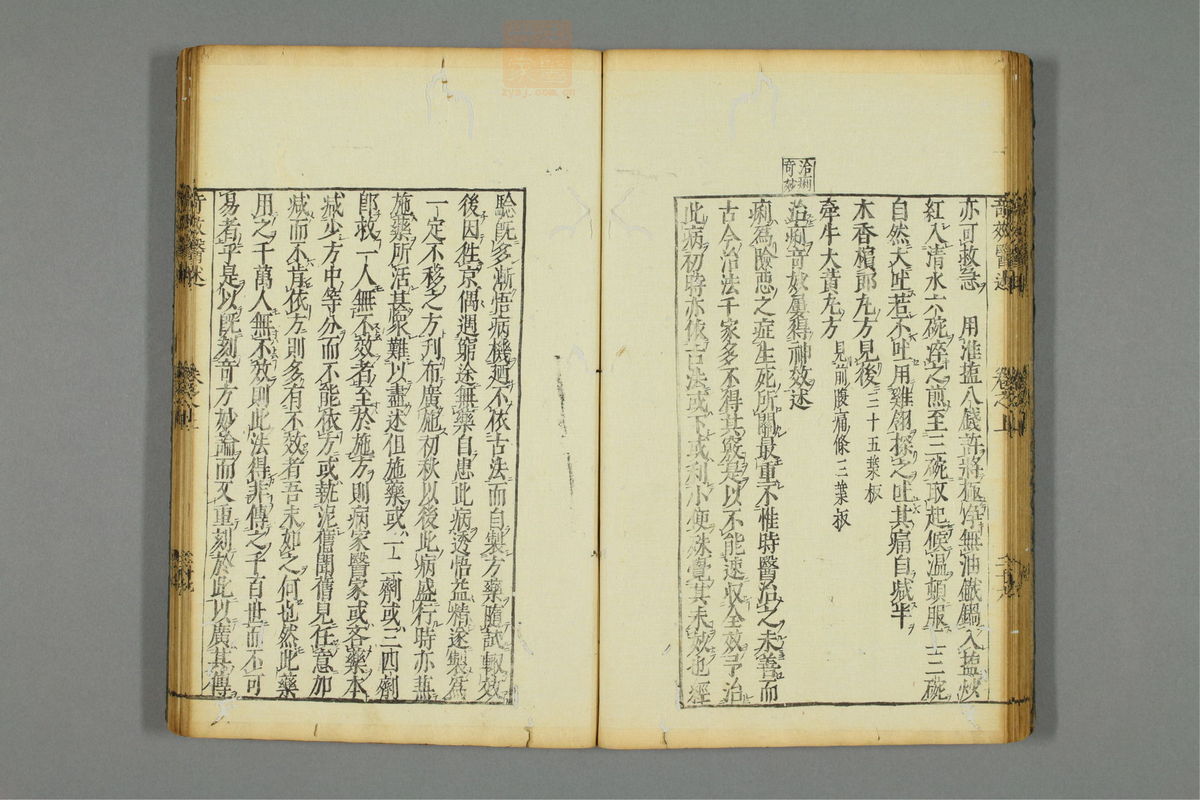 亦可救急　用淮塩八錢許將極淨無油鐵鍋入塩炒
紅入清水六碗淬之煎至三碗取起候溫頓服一二三碗
自然大吐若不吐用雞翎探之吐其痛自减半
木香檳郎九方見後三十五葉板
牽牛大黃九方見前腹痛條三葉板
治痢奇妙屢得神效述
治痢奇妙
痢為險惡之症生死所關最重不惟時醫治之未善而
古今治法千家多不得其竅是以不能速収全效予治
此病初時亦依古法或下或利小便殊覺其未妙也經
驗既多漸悟病機廼不依古法而自製方藥隨試輙效
後因徃京偶遇窮途無藥自患此病透悟益精遂製為
一定不移之方刋布廣施初秋以後此病盛行時亦無
施藥所活甚衆難以盡述但施藥或一二劑或三四劑
卽救一人無不效者至於施方則病家醫家或各藥本
减少方中等分而不能依方或執泥舊聞舊見任意加
减而不肯依方則多有不效者吾未如之何也然此藥
用之千萬人無不效則此法得非傳之千百世而不可
易者乎是以既刻奇方妙論而又重刻於此以廣其傳
奇效醫述
卷之上
奇效醫述